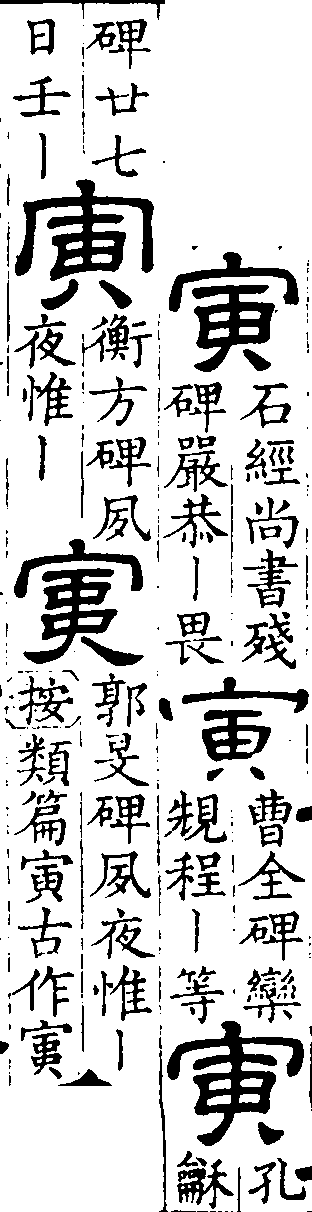 寅
石經尚書殘
碑嚴恭丨畏
寅
曹全碑欒
䂓程丨等
寅
孔
龢
碑廿七
日壬丨
寅
衡方碑夙
夜惟丨
寅
郭旻碑夙夜惟丨
按類篇寅古作寅